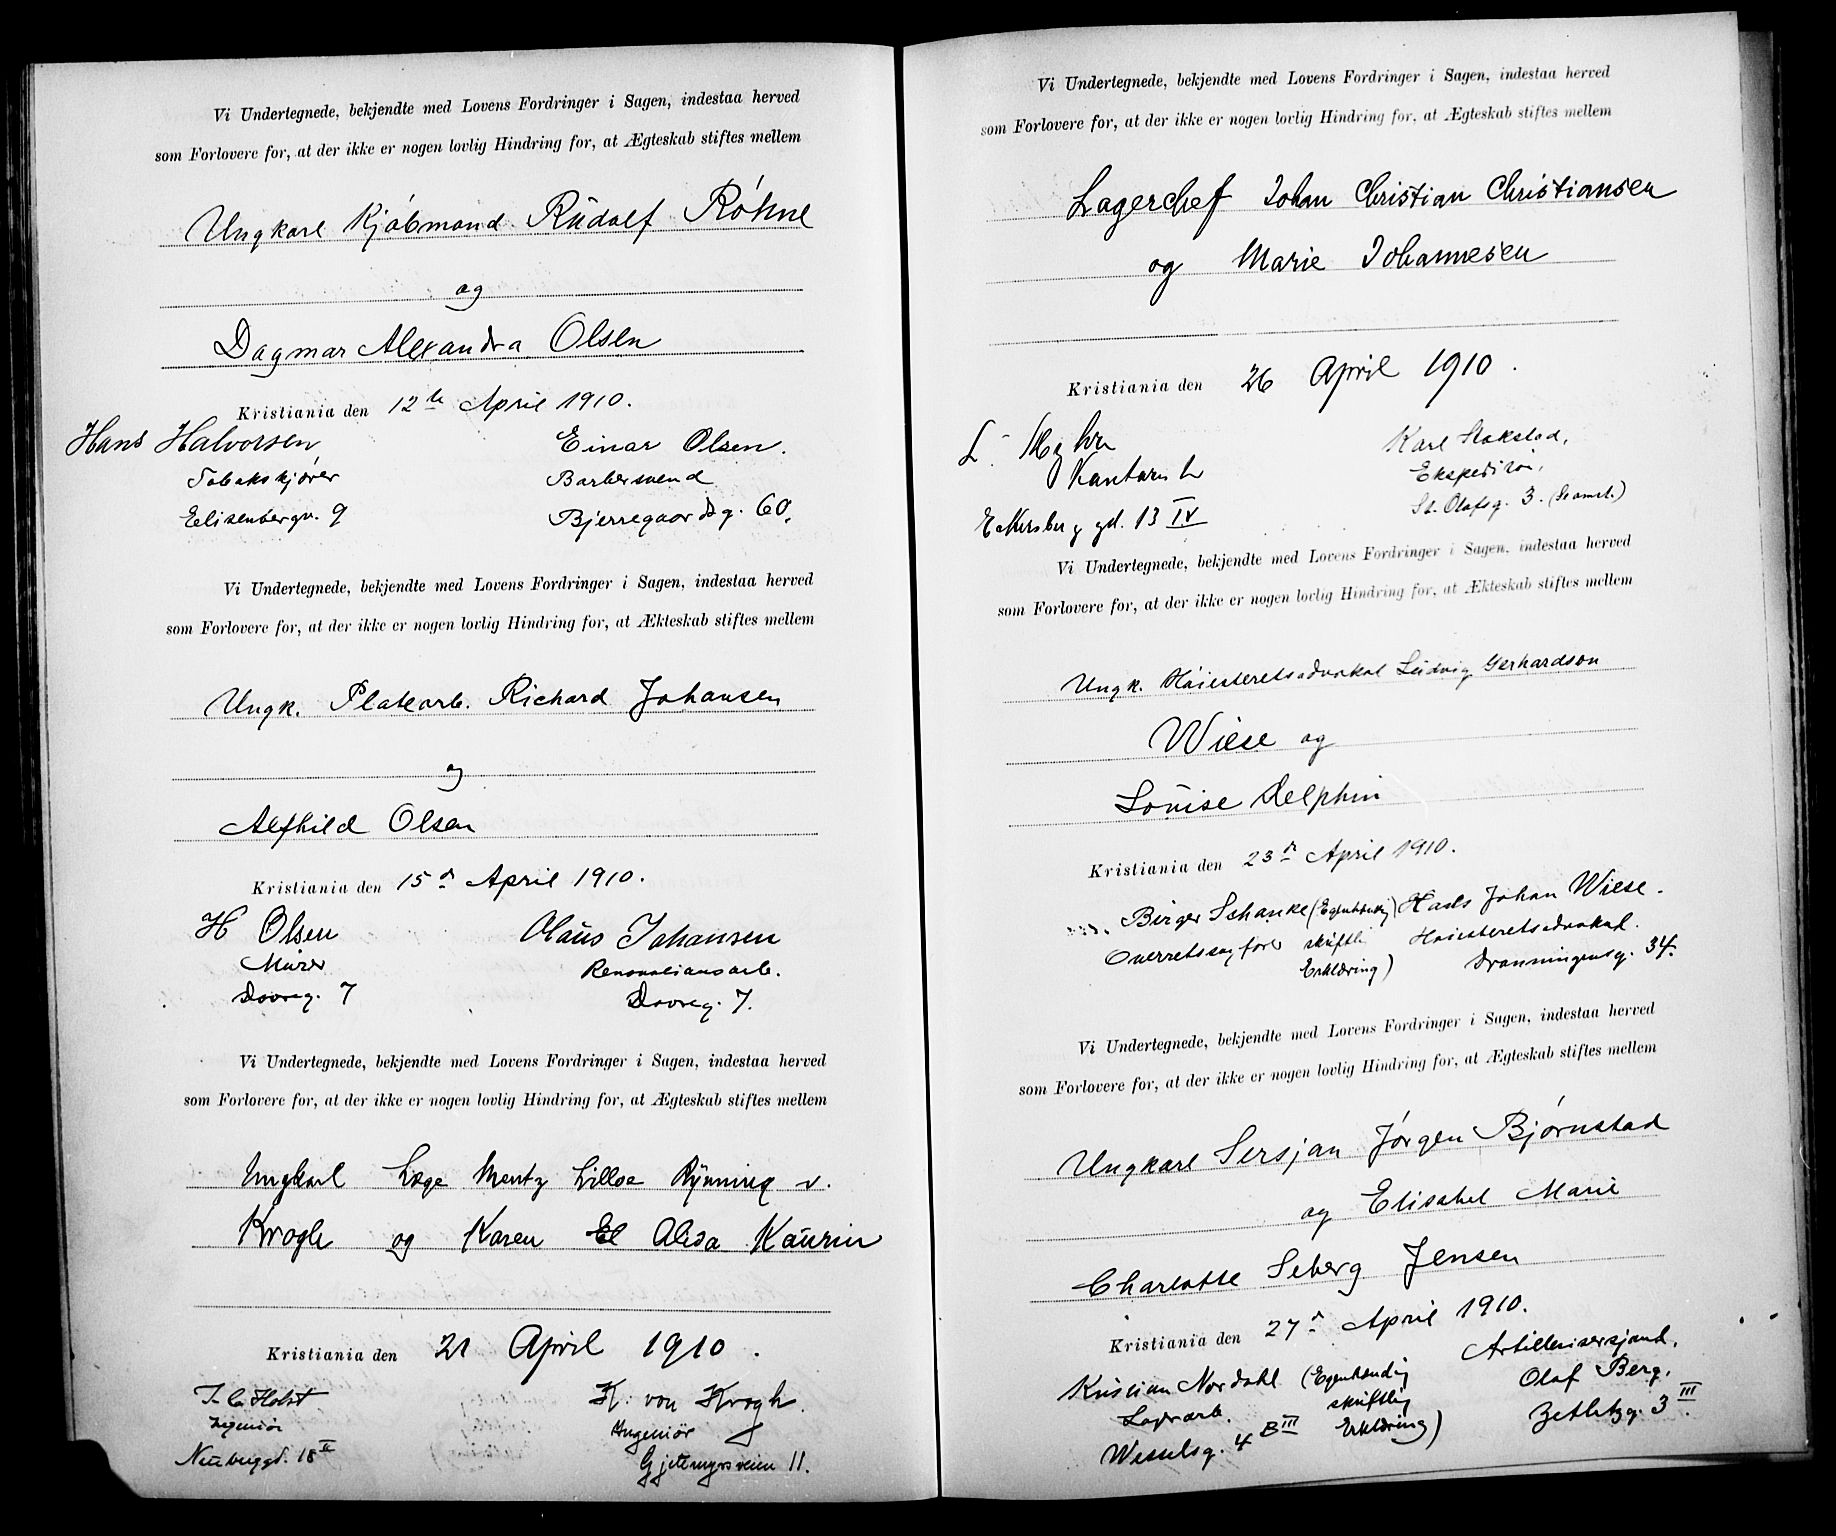 Vi Undertegnede, bekjendte med Lovens Fordringer i Sagen, indestaa herved
som Forlovere for, at der ikke er nogen lovlig Hindring for, at Ægteskab stiftes mellem
Ungkarl Kjøbmand Rudolf Røhne
og
Dagmar Alexandra Olsen
Kristiania den 12te April 1910.
Hans Halvorsen
Einar Olsen.
Tobakskjører
Barbersvend
Elisenbergv. 9
Bjerregaardsg. 60.
Vi Undertegnede, bekjendte med Lovens Fordringer i Sagen, indestaa herved
som Forlovere for, at der ikke er nogen lovlig Hindring for, at Ækteskab stiftes mellem
Ungk. Platearb. Richard Johansen
og
Alfhild Olsen
Kristiania den 15d April 1910.
H Olsen
Olaus Johansen
Murer
Renovationsarb.
Dovreg. 7
Dovreg. 7.
Vi Undertegnede, bekjendte med Lovens Fordringer i Sagen, indestaa herved
som Forlovere for, at der ikke er nogen lovlig Hindring for, at Ægteskab stiftes mellem
Ungkarl Læge Mentz Lilloe Rynning v.
Krogh og Karen El Alida Kaurin
Kristiania den 21 April 1910.
J. C. Holst
K. von Krogh.
Ingeniør
Ingeniør
Neubuggt. 18 II
Gjetemyrsveien 11.
Vi Undertegnede, bekjendte med Lovens Fordringer i Sagen, indestaa herved
som Forlovere for, at der ikke er nogen lovlig Hindring for, at Ægteskab stiftes mellem
Lagerchef Johan Christian Christiansen
og Marie Johannesen
Kristiania den 26 April 1910.
L. Myhre
Karl Stokstad,
Kantorist
Ekspeditør,
Eckersberg gd. 13 IV
St. Olafsg. 3.
Vi Undertegnede, bekjendte med Lovens Fordringer i Sagen, indestaa herved
som Forlovere for, at der ikke er nogen lovlig Hindring for, at Ækteskab stiftes mellem
Ungk. Høiesteretsadvokat Ludvig Gerhardson
Wiese og
Louise Delphin
Kristiania den 23d April 1910.
Birger Schanke (Egenhændig
Hans Johan Wiese.
Overretssagfører skriftlig
Høiesteretsadvokat.
Erklæring)
Dronningensg. 34.
Vi Undertegnede, bekjendte med Lovens Fordringer i Sagen, indestaa herved
som Forlovere for, at der ikke er nogen lovlig Hindring for, at Ægteskab stiftes mellem
Ungkarl Sersjan Jørgen Bjørnstad
og Elisabet Marie
Charlotte Seberg Jensen
Kristiania den 27d April 1910.
Artillerisersjand,
Kristian Nordahl (Egenhændig
Olaf Berg,
Lagerarb. skriftlig
Zetlitzg. 3 III.
Wesselsg. 4 B III Erklæring)